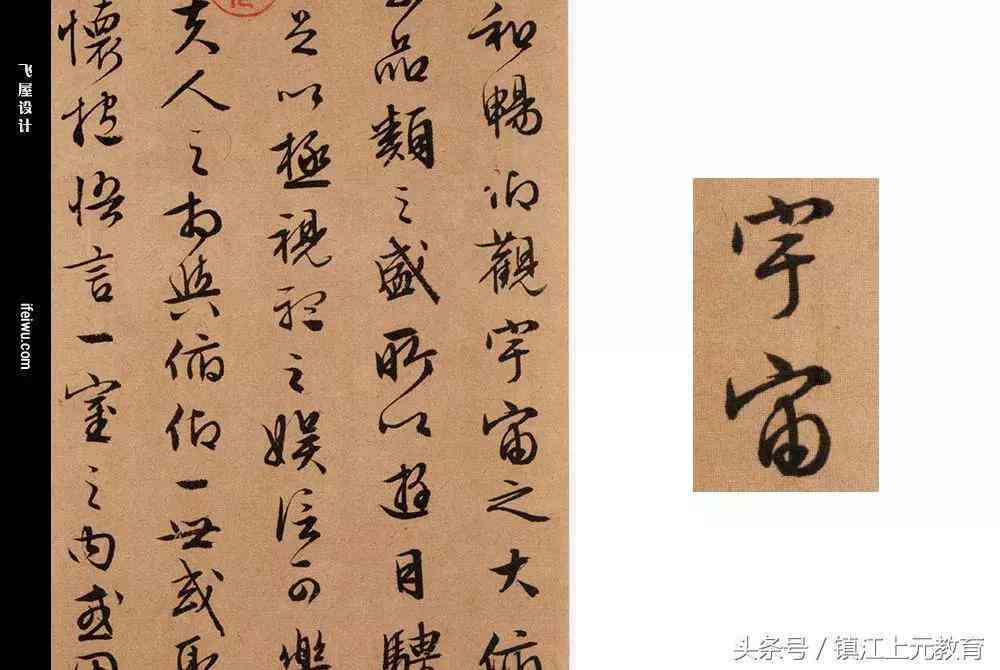 和暢仰觀宇宙之大俯
品類之盛所以遊目騁
足以極視聽之娛信可樂
夫人之相與俯仰一世或取
懷抱悟言一室之內或因
宇宙
飞屋设计
ifeiwu.com
头条号 / 镇江上元教育